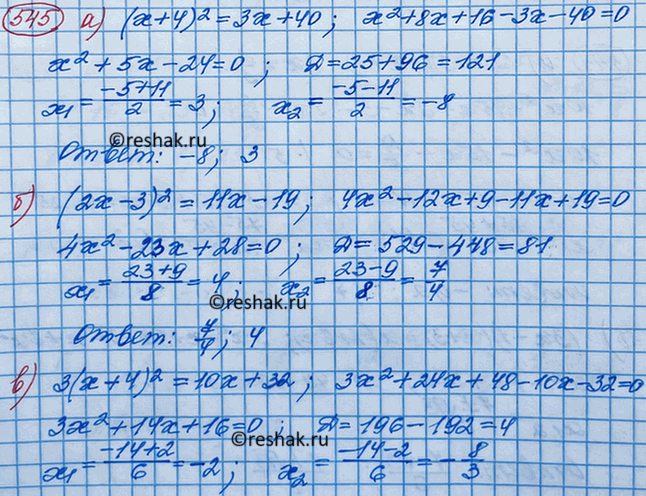 545 а) (x+4)² = 3x+40; x²+8x+16-3x-40=0
x²+5x-24=0; D=25+96=121
x₁ = (-5+11)/2 = 3; x₂ = (-5-11)/2 = -8
©reshak.ru
Ответ: -8; 3
б) (2x-3)² = 11x-19; 4x²-12x+9-11x+19=0
4x²-23x+28=0; D=529-448=81
x₁ = (23+9)/8 = 4; x₂ = (23-9)/8 = 7/4
©reshak.ru
Ответ: 7/4; 4
в) 3(x+4)² = 10x+32; 3x²+24x+48-10x-32=0
3x²+14x+16=0; D=196-192=4
x₁ = (-14+2)/6 = -2; x₂ = (-14-2)/6 = -8/3
©reshak.ru